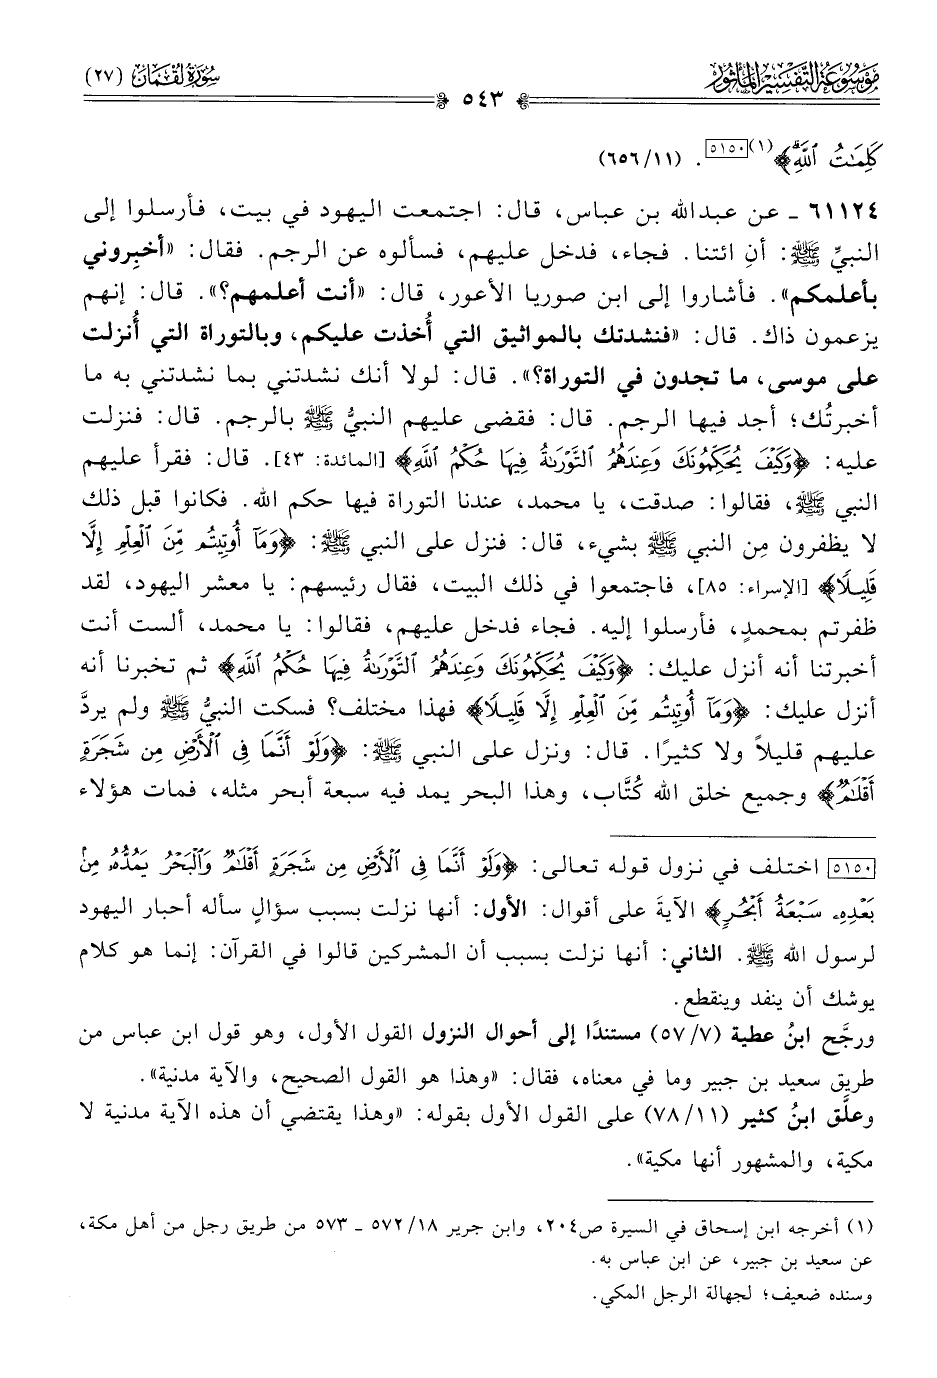 موسوعة التفسير المأثور
سورة لقمان (٢٧)
٥٤٣
كَلِمَٰتُ ٱللَّهِۚ﴾(١)[٥١٥٠]. (١١/ ٦٥٦)
٦١١٢٤ ـ عن عبدالله بن عباس، قال: اجتمعت اليهود في بيت، فأرسلوا إلى
النبيِّ ﷺ: أنِ ائتنا. فجاء، فدخل عليهم، فسألوه عن الرجم. فقال: «أخبِروني
بأعلمكم». فأشاروا إلى ابن صوريا الأعور، قال: «أنت أعلمهم؟». قال: إنهم
يزعمون ذاك. قال: «فنشدتك بالمواثيق التي أُخذت عليكم، وبالتوراة التي أُنزلت
على موسى، ما تجدون في التوراة؟». قال: لولا أنك نشدتني بما نشدتني به ما
أخبرتُك؛ أجد فيها الرجم. قال: فقضى عليهم النبيُّ ﷺ بالرجم. قال: فنزلت
عليه: ﴿وَكَيۡفَ يُحَكِّمُونَكَ وَعِندَهُمُ ٱلتَّوۡرَىٰةُ فِيهَا حُكۡمُ ٱللَّهِ﴾ [المائدة: ٤٣]. قال: فقرأ عليهم
النبي ﷺ، فقالوا: صدقت، يا محمد، عندنا التوراة فيها حكم الله. فكانوا قبل ذلك
لا يظفرون مِن النبي ﷺ بشيء، قال: فنزل على النبي ﷺ: ﴿وَمَآ أُوتِيتُم مِّنَ ٱلۡعِلۡمِ إِلَّا
قَلِيلًا﴾ [الإسراء: ٨٥]، فاجتمعوا في ذلك البيت، فقال رئيسهم: يا معشر اليهود، لقد
ظفرتم بمحمدٍ، فأرسلوا إليه. فجاء فدخل عليهم، فقالوا: يا محمد، ألست أنت
أخبرتنا أنه أنزل عليك: ﴿وَكَيۡفَ يُحَكِّمُونَكَ وَعِندَهُمُ ٱلتَّوۡرَىٰةُ فِيهَا حُكۡمُ ٱللَّهِ﴾ ثم تخبرنا أنه
أنزل عليك: ﴿وَمَآ أُوتِيتُم مِّنَ ٱلۡعِلۡمِ إِلَّا قَلِيلًا﴾ فهذا مختلف؟ فسكت النبيُّ ﷺ ولم يردَّ
عليهم قليلاً ولا كثيرًا. قال: ونزل على النبي ﷺ: ﴿وَلَوۡ أَنَّمَا فِي ٱلۡأَرۡضِ مِن شَجَرَةٍ
أَقۡلَٰمٞ﴾ وجميع خلق الله كُتَّاب، وهذا البحر يمد فيه سبعة أبحر مثله، فمات هؤلاء
[٥١٥٠] اختلف في نزول قوله تعالى: ﴿وَلَوۡ أَنَّمَا فِي ٱلۡأَرۡضِ مِن شَجَرَةٍ أَقۡلَٰمٞ وَٱلۡبَحۡرُ يَمُدُّهُۥ مِنۢ
بَعۡدِهِۦ سَبۡعَةُ أَبۡحُرٖ﴾ الآيةَ على أقوال: الأول: أنها نزلت بسبب سؤالٍ سأله أحبار اليهود
لرسول الله ﷺ. الثاني: أنها نزلت بسبب أن المشركين قالوا في القرآن: إنما هو كلام
يوشك أن ينفد وينقطع.
ورجَّح ابنُ عطية (٧/ ٥٧) مستندًا إلى أحوال النزول القول الأول، وهو قول ابن عباس من
طريق سعيد بن جبير وما في معناه، فقال: «وهذا هو القول الصحيح، والآية مدنية».
وعلَّق ابنُ كثير (١١/ ٧٨) على القول الأول بقوله: «وهذا يقتضي أن هذه الآية مدنية لا
مكية، والمشهور أنها مكية».
(١) أخرجه ابن إسحاق في السيرة ص٢٠٤، وابن جرير ١٨/ ٥٧٢ ـ ٥٧٣ من طريق رجل من أهل مكة،
عن سعيد بن جبير، عن ابن عباس به.
وسنده ضعيف؛ لجهالة الرجل المكي.